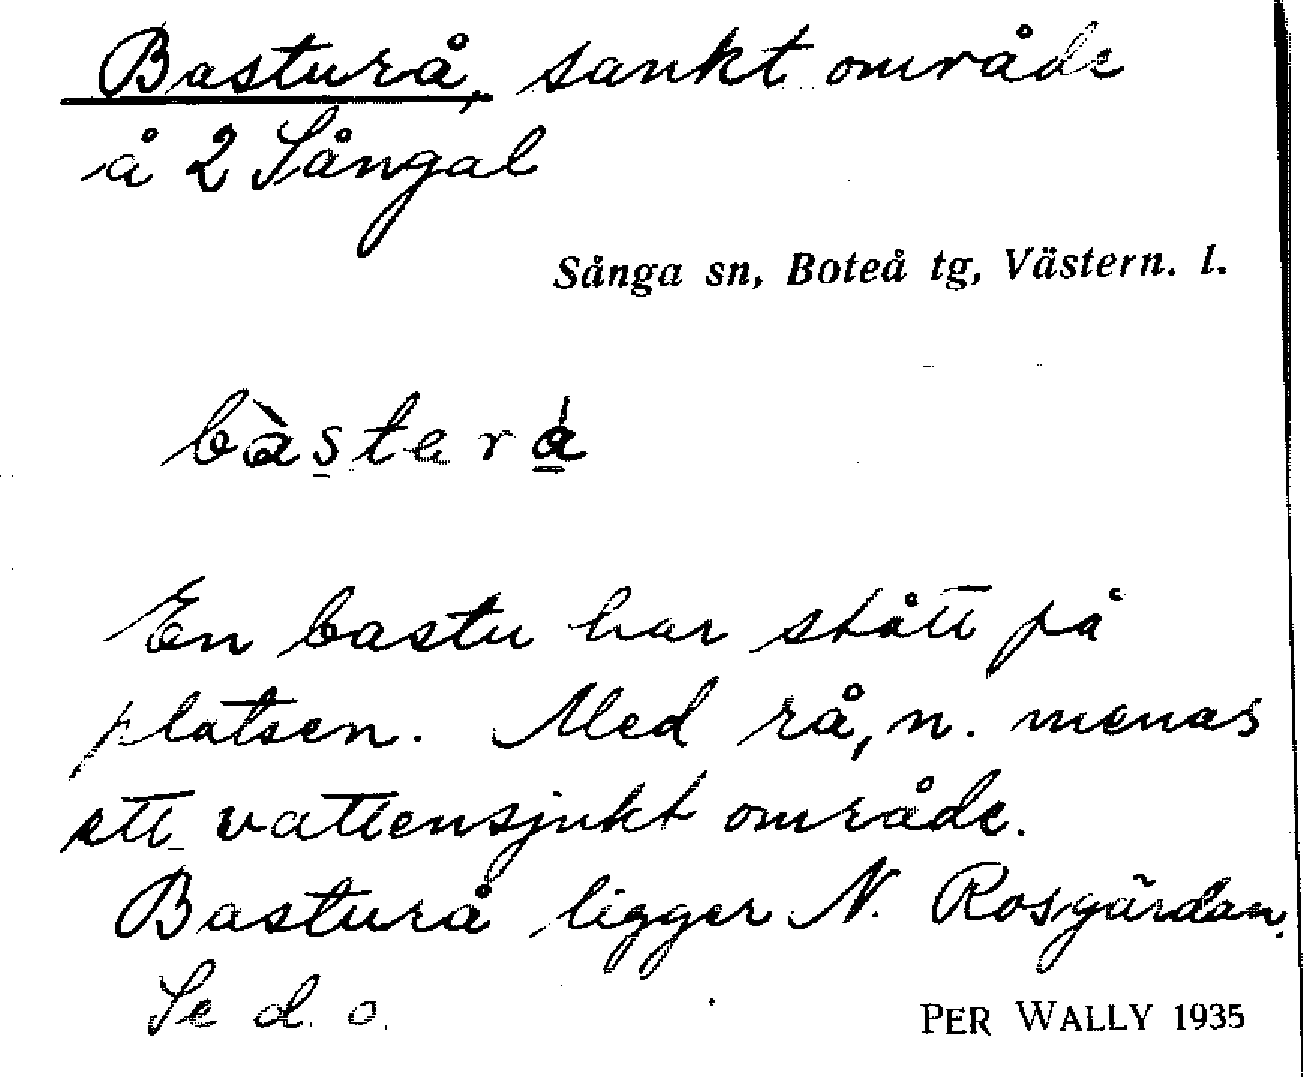 Basturå, sankt område
å 2 Sångal
Sånga sn, Boteå tg, Västern. l.
bàsterá
En bastu har stått på
platsen. Med rå, n. menas
ett vattensjukt område.
Basturå ligger N. Rosgärdan.
Se d. o.
PER WALLY 1935